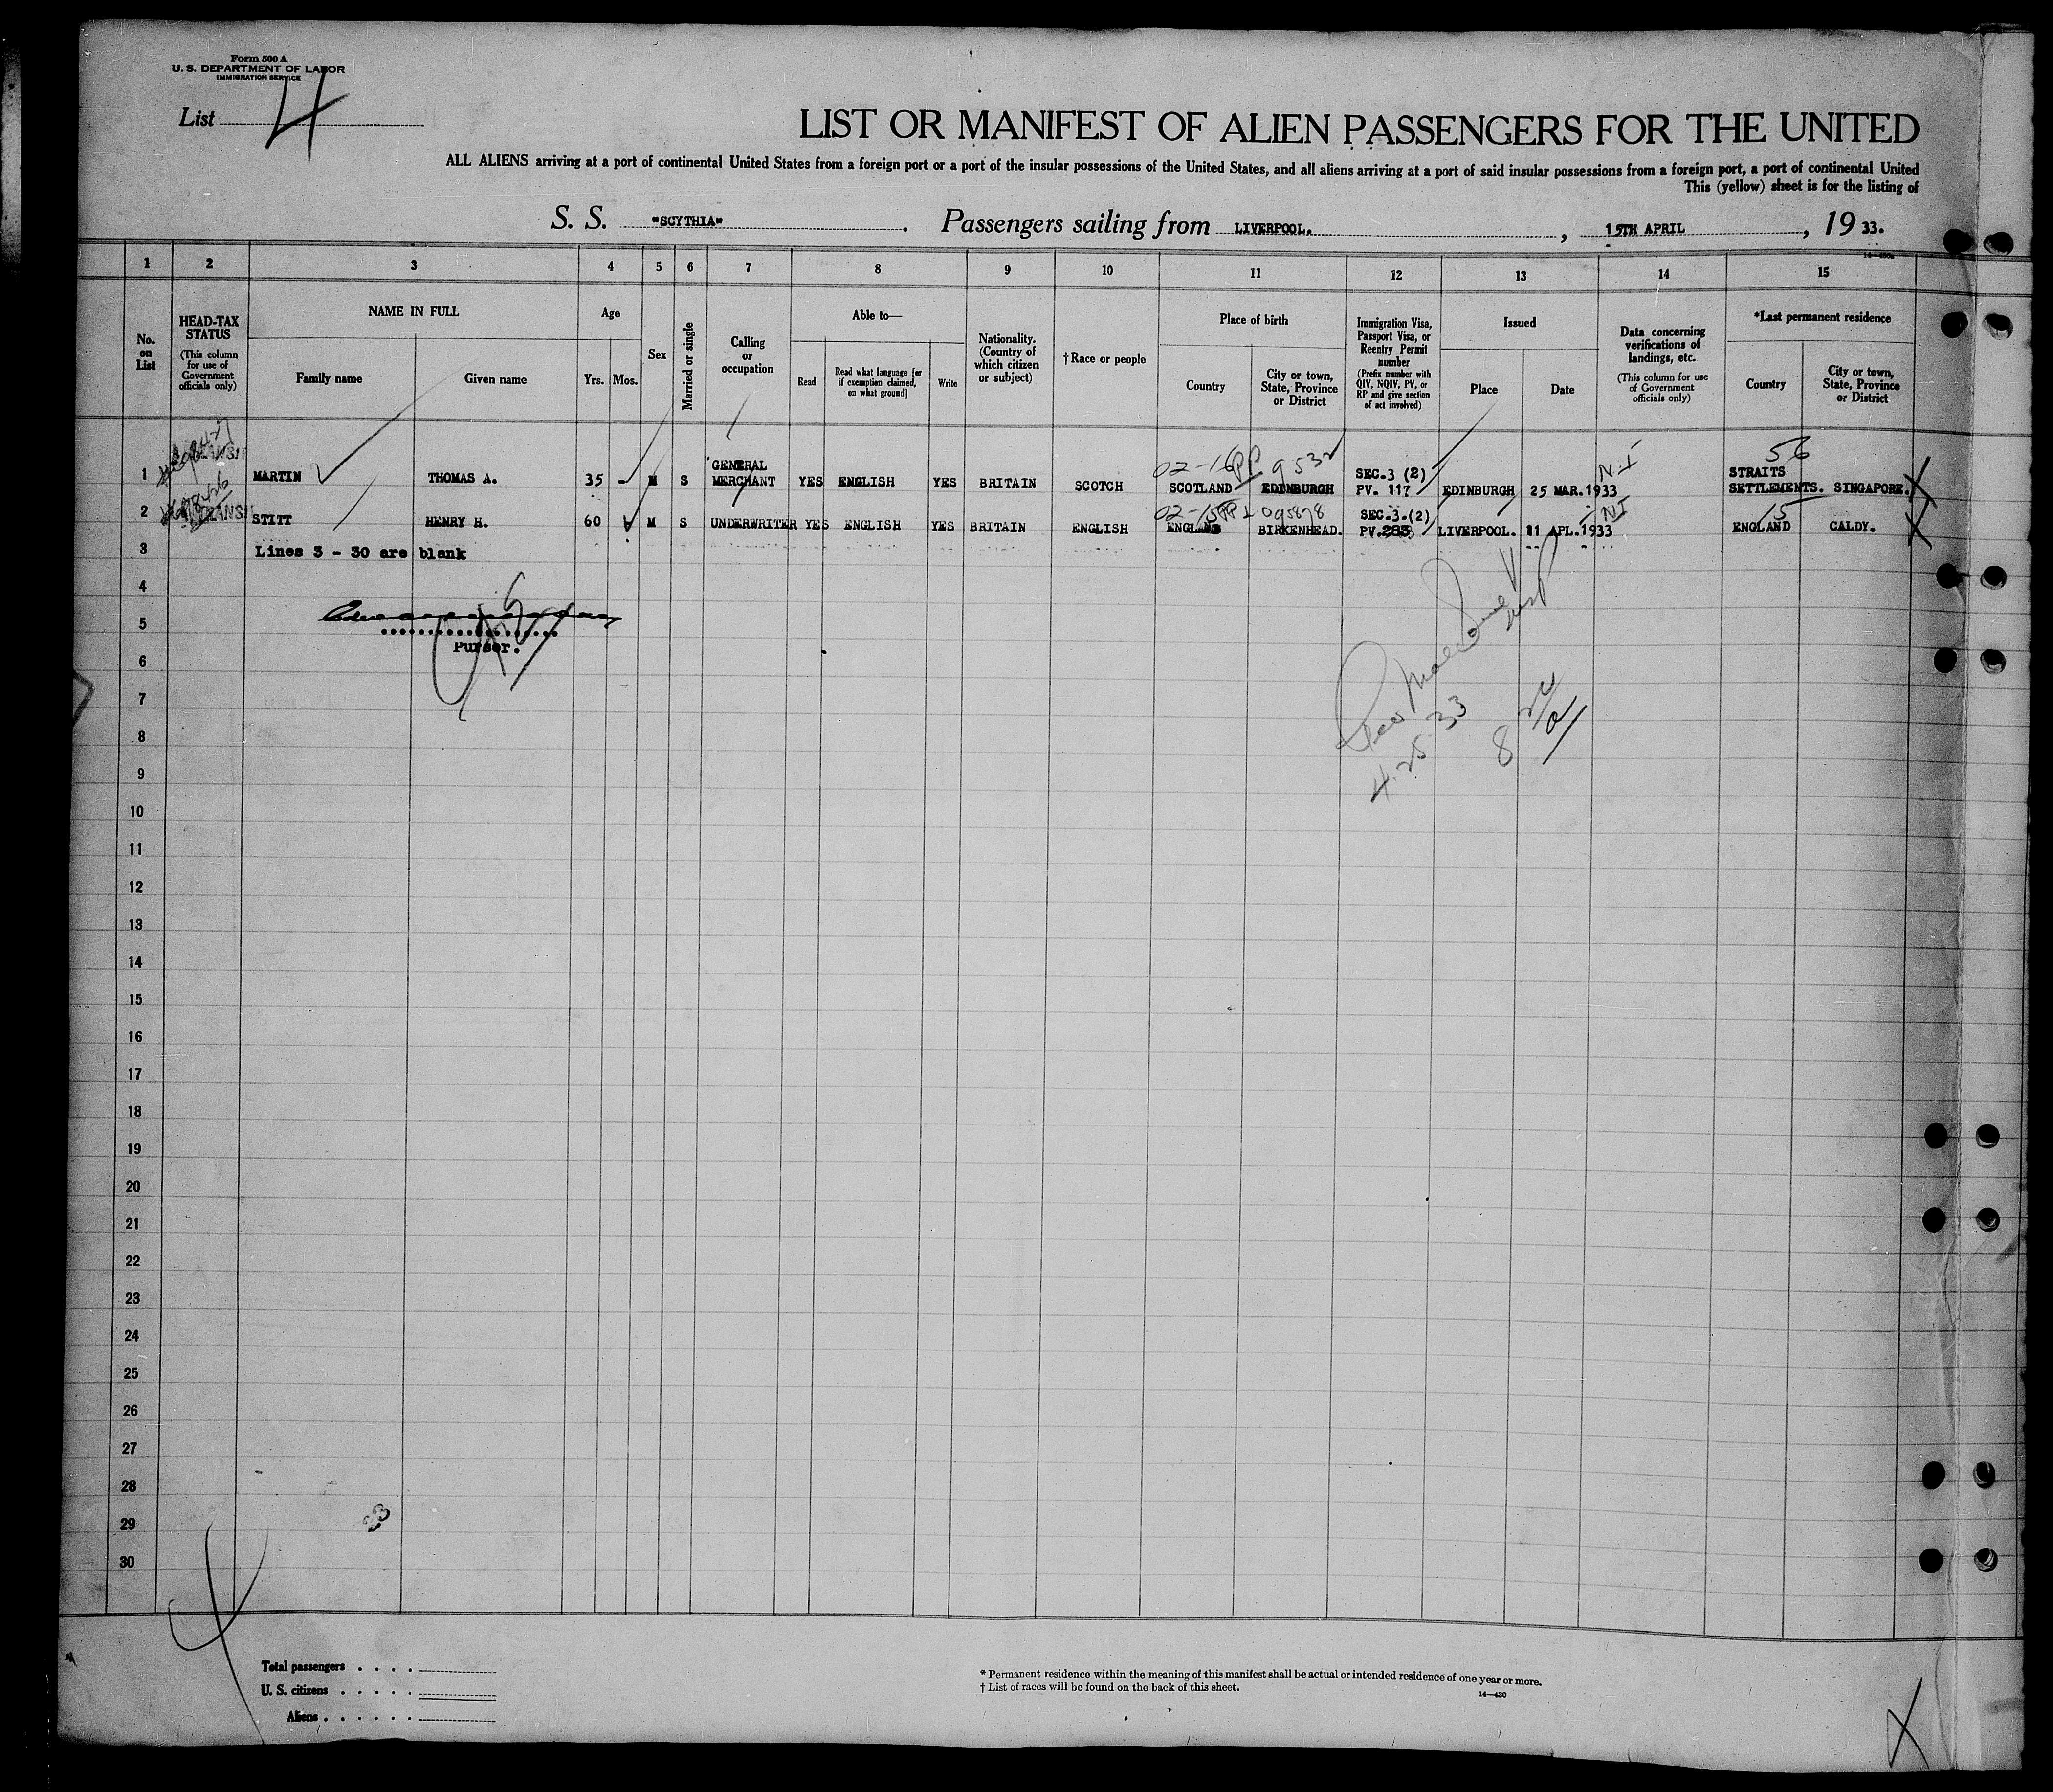 Form 500 A
U. S. DEPARTMENT OF LABOR
IMMIGRATION SERVICE
List 4
LIST OR MANIFEST OF ALIEN PASSENGERS FOR THE UNITED
ALL ALIENS arriving at a port of continental United States from a foreign port or a port of the insular possessions of the United States, and all aliens arriving at a port of said insular possessions from a foreign port, a port of continental United
This (yellow) sheet is for the listing of
S. S. "SCYTHIA". Passengers sailing from LIVERPOOL., 15TH APRIL, 19 33.
1 2 3 4 5 6 7 8 9 10 11 12 13 14 15
No. on List
HEAD-TAX STATUS
(This column for use of Government officials only)
NAME IN FULL
Family name Given name
Age
Yrs. Mos.
Sex
Married or single
Calling or occupation
Able to—
Read
Read what language [or if exemption claimed, on what ground]
Write
Nationality. (Country of which citizen or subject)
†Race or people
Place of birth
Country
City or town, State, Province or District
Immigration Visa, Passport Visa, or Reentry Permit number
(Prefix number with QIV, NQIV, PV, or RP and give section of act involved)
Issued
Place Date
Data concerning verifications of landings, etc.
(This column for use of Government officials only)
*Last permanent residence
Country
City or town, State, Province or District
02-16 PP 9532 N.I 56
GENERAL SEC.3 (2) STRAITS
1 MARTIN THOMAS A. 35 - M S MERCHANT YES ENGLISH YES BRITAIN SCOTCH SCOTLAND EDINBURGH PV. 117 EDINBURGH 25 MAR.1933 SETTLEMENTS. SINGAPORE.
TRANSIT
02-15 PP 095878 SEC.3.(2) NI 15
2 STITT HENRY H. 60 M S UNDERWRITER YES ENGLISH YES BRITAIN ENGLISH ENGLAND BIRKENHEAD. PV.283 LIVERPOOL. 11 APL.1933 ENGLAND CALDY.
3 Lines 3 - 30 are blank
4
5
Purser.
6
7
8
4.25.33
9
10
11
12
13
14
15
16
17
18
19
20
21
22
23
24
25
26
27
28
29
30
Total passengers . . . .
U. S. citizens . . . . .
Aliens . . . . . .
* Permanent residence within the meaning of this manifest shall be actual or intended residence of one year or more.
† List of races will be found on the back of this sheet.
14—430